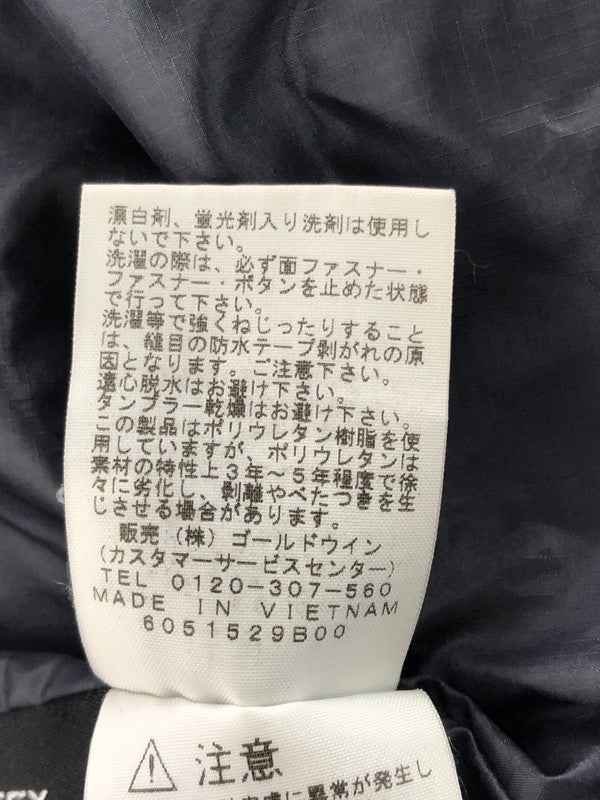 漂白剤、蛍光剤入り洗剤は使用し
ないで下さい。
洗濯の際は、必ず面ファスナー・
ファスナー・ボタンを止めた状態
で行って下さい。
洗濯等で強くねじったりすること
は、縫目の防水テープ剥がれの原
因となります。ご注意下さい。
遠心脱水はお避け下さい。
タンブラー乾燥はお避け下さい。
この製品はポリウレタン樹脂を使
用していますが、ポリウレタンは
素材の特性上3年～5年程度で徐
々に劣化し、剥離やべたつきを生
じさせる場合があります。
販売（株）ゴールドウイン
(カスタマーサービスセンター)
TEL 0120-307-560
MADE IN VIETNAM
6051529B00
注意
に異常が発生し